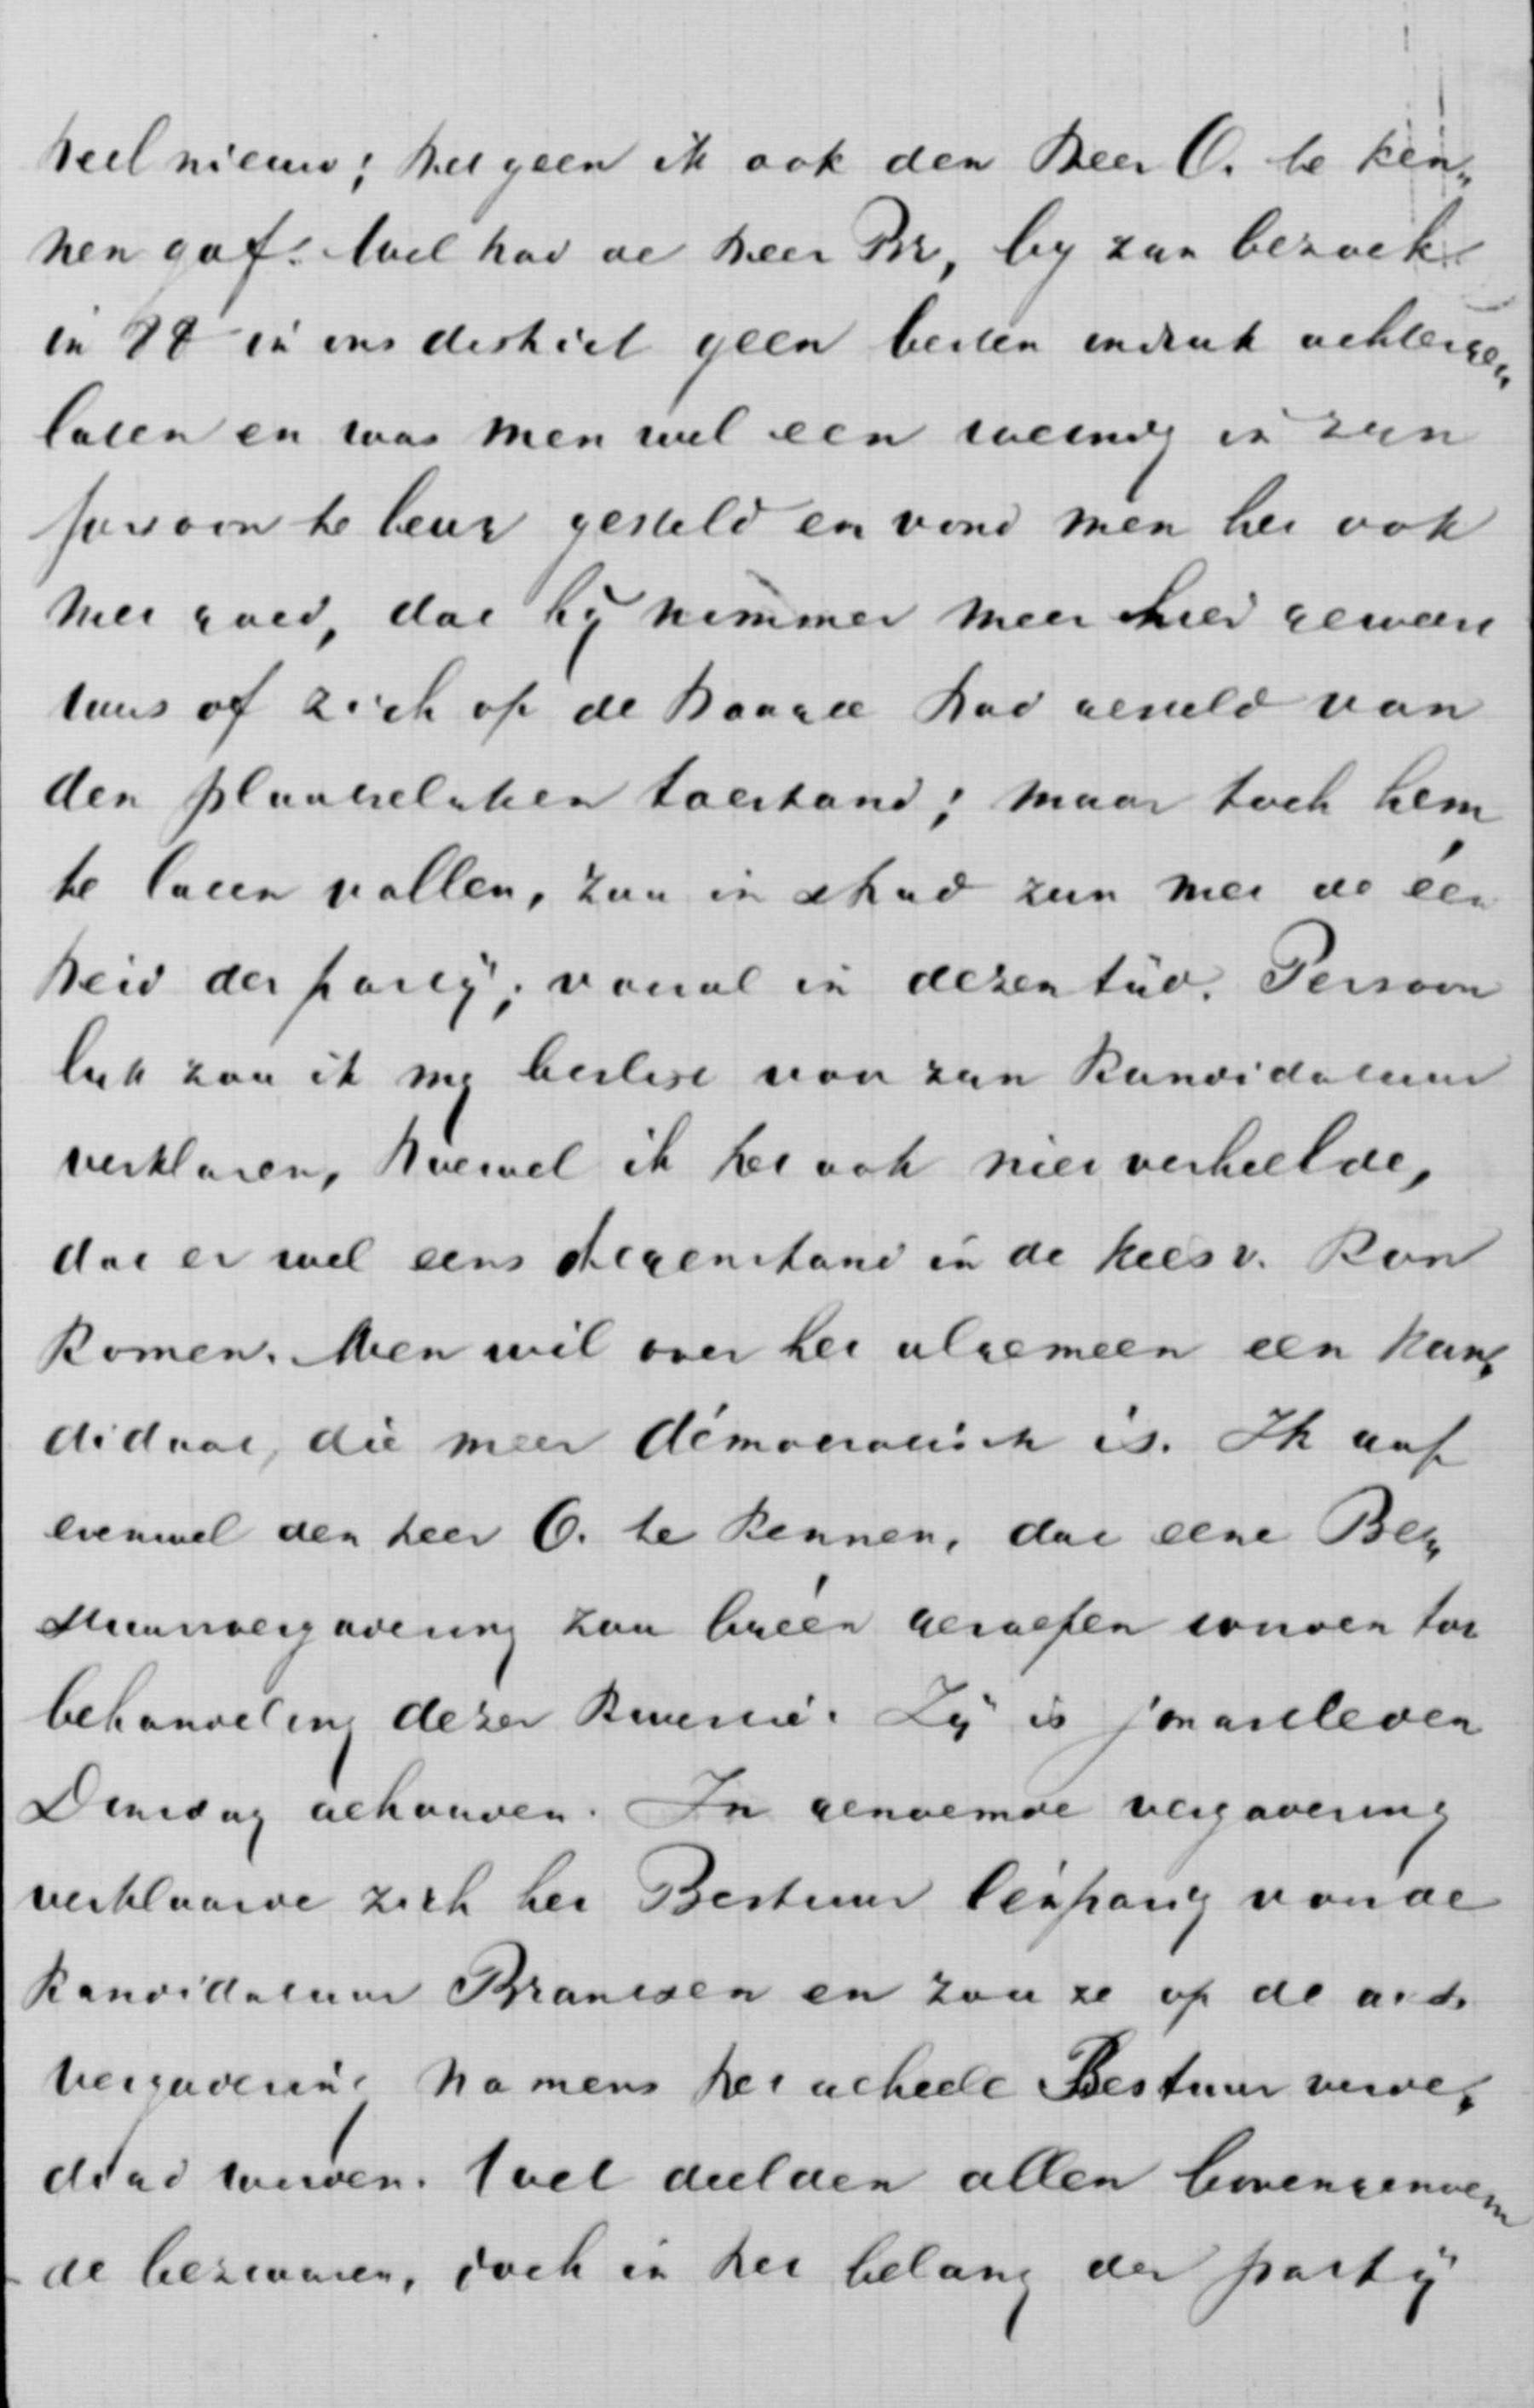 heel nieuw; hetgeen ik ook den Heer O. te ken„
nen gaf. Wel had de heer Br, by zyn bezoek
in 88 in ons district geen besten indruk achterge„
laten en was men wel een weinig in zyn
persoon te leur gesteld en vond men het ook
niet goed, dat hy nimmer meer hier geweest
was of zich op de hoogte had gesteld van
den plaatselyken toestand; maar toch hem
te laten vallen, zou in stryd zyn met de één
heid der party, vooral in dezen tyd. Persoon
lyk zou ik my beslist voor zyn kandidatuur
verklaren, hoewel ik het ook niet verheelde,
dat er wel eens tegenstand in de kiesv. kon
komen. Men wil over het algemeen een kan„
didaat, die meer democratisch is. Ik gaf
evenwel den heer O. te kennen, dat eene Be„
stuursvergadering zou byéén geroepen worden tot
behandeling dezer kwestie. Zy is j̓ongstleden
Dinsdag gehouden. In genoemde vergadering
verklaarde zich het Bestuur éénparig voor de
kandidatuur Brantsen en zou ze op de a.s.
vergadering namens het geheele Bestuur verde„
digd worden. Wel deelden allen bovengenoem
de bezwaren, doch in het belang der party